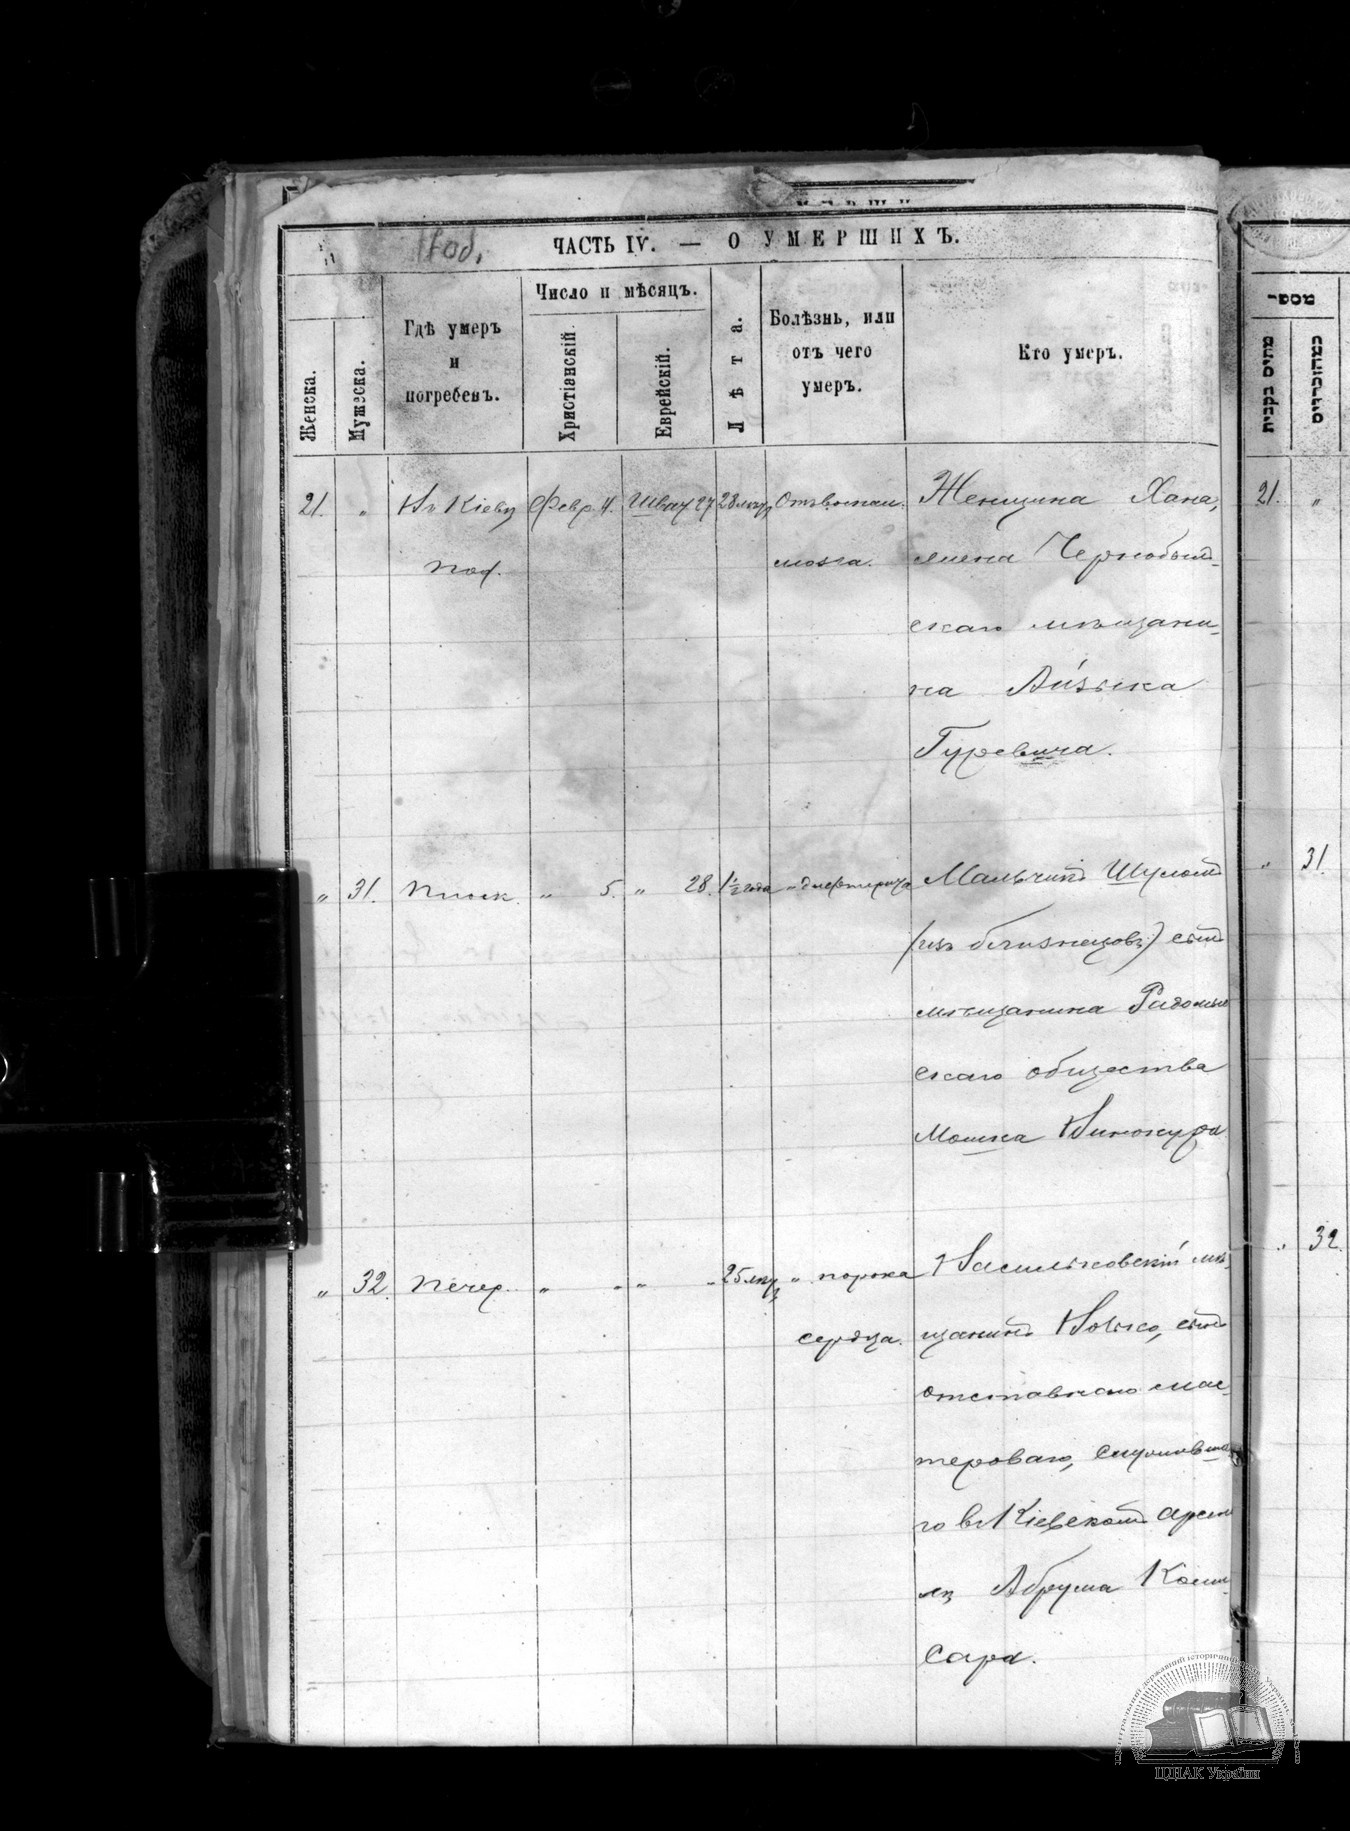 Под.
ЧАСТЬ IV. — О УМЕРШИХЪ.
Женска.
Мужеска.
Гдѣ умеръ
и
погребенъ.
Число и мѣсяцъ.
Христіанскій
Еврейскій.
Лѣта.
Болѣзнь, или
отъ чего
умеръ.
Кто умеръ.
21. " Въ Кіеву Февр. 4. Шват 27 28 лѣтъ Отъ воспал. Женщина Хана,
Под. мозга. жена Чернобыль-
скаго мѣщани-
на Айзика
Гуревича.
" 31. Плоск. " 5. " 28. 1½ года " дифтерита Мальчикъ Шулимъ
(изъ близнецовъ) сынъ
мѣщанина Радомысл
скаго общества
Мошка Винокура
" 32. Печер. " " " " 25 лѣтъ " порока Васильковскій мѣ-
сердца. щанинъ Волько, сынъ
отставного мас-
терового, служивша
го въ Кіевскомъ арсена
лѣ Абрума Коми-
сара.
מספר
מהים בקנית
כמהזכרים
21. "
" 31.
" 32.
ЦДІАК України